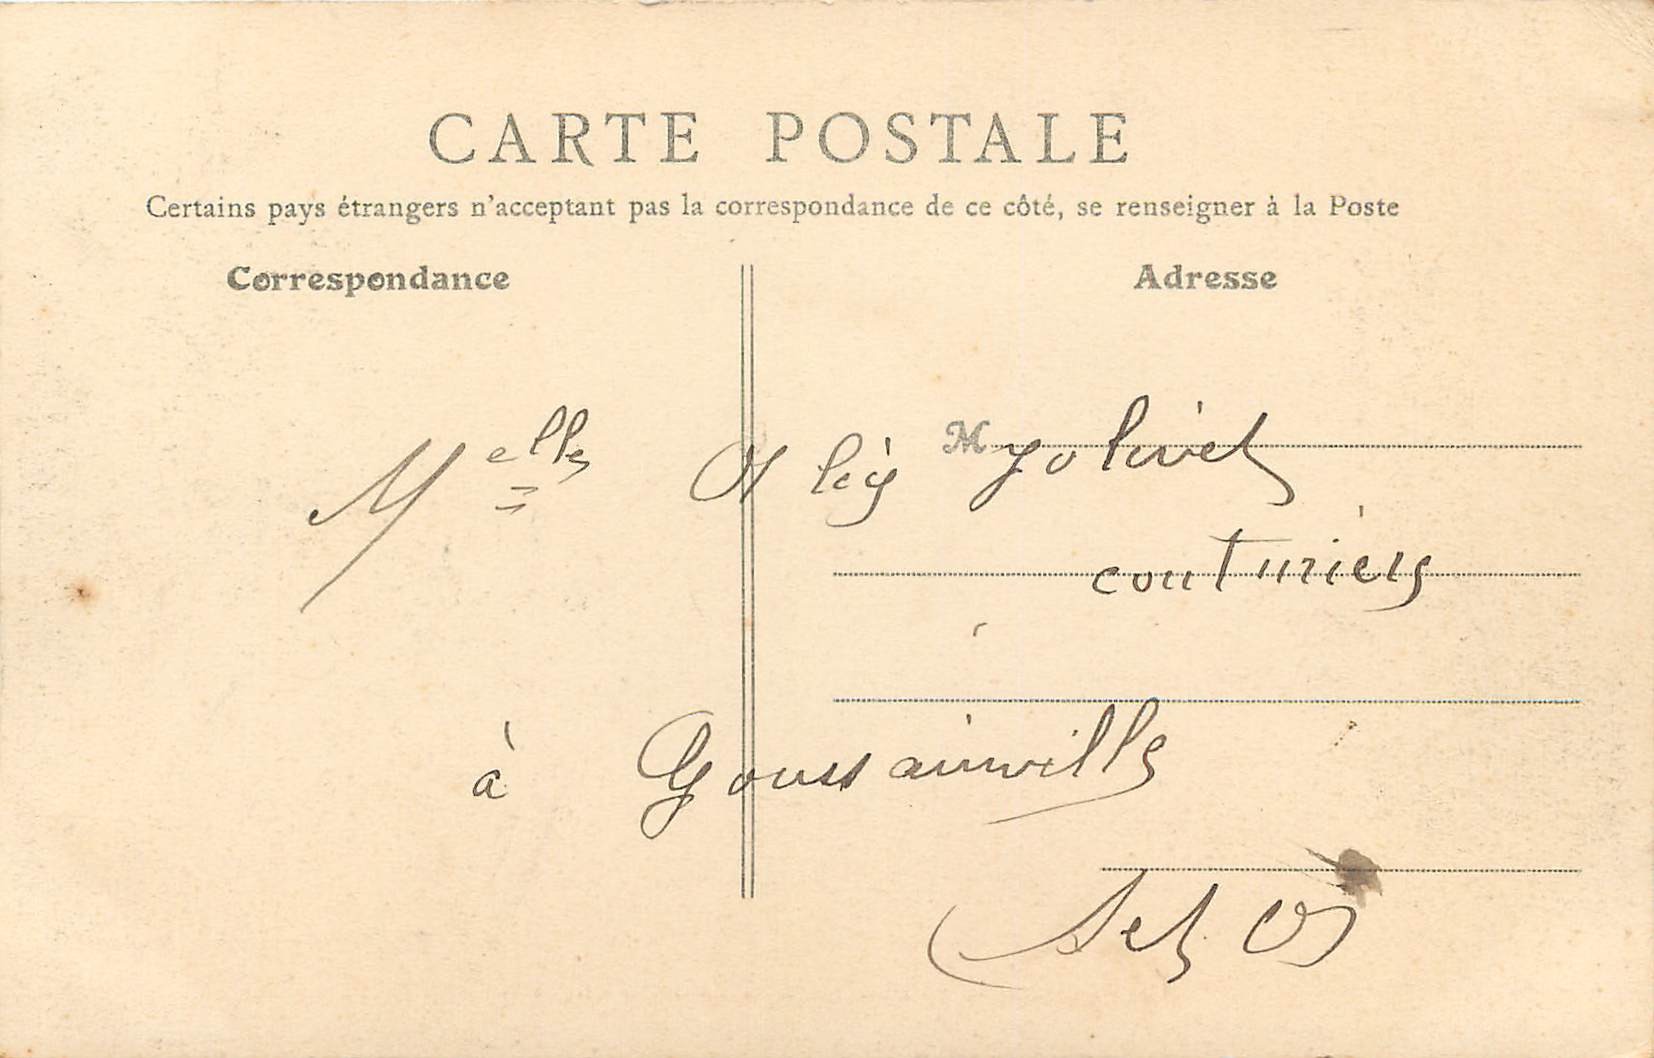 CARTE POSTALE
Certains pays étrangers n'acceptant pas la correspondance de ce côté, se renseigner à la Poste
Correspondance
Adresse
Melle M Jolivet
couturière
à Goussainville
(S et O)